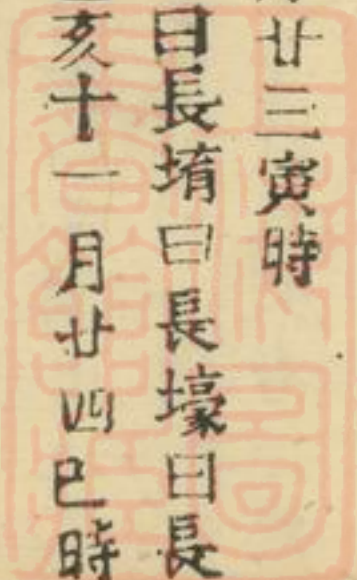 廿三寅時
曰長堉曰長壕曰長
亥十一月廿四巳時